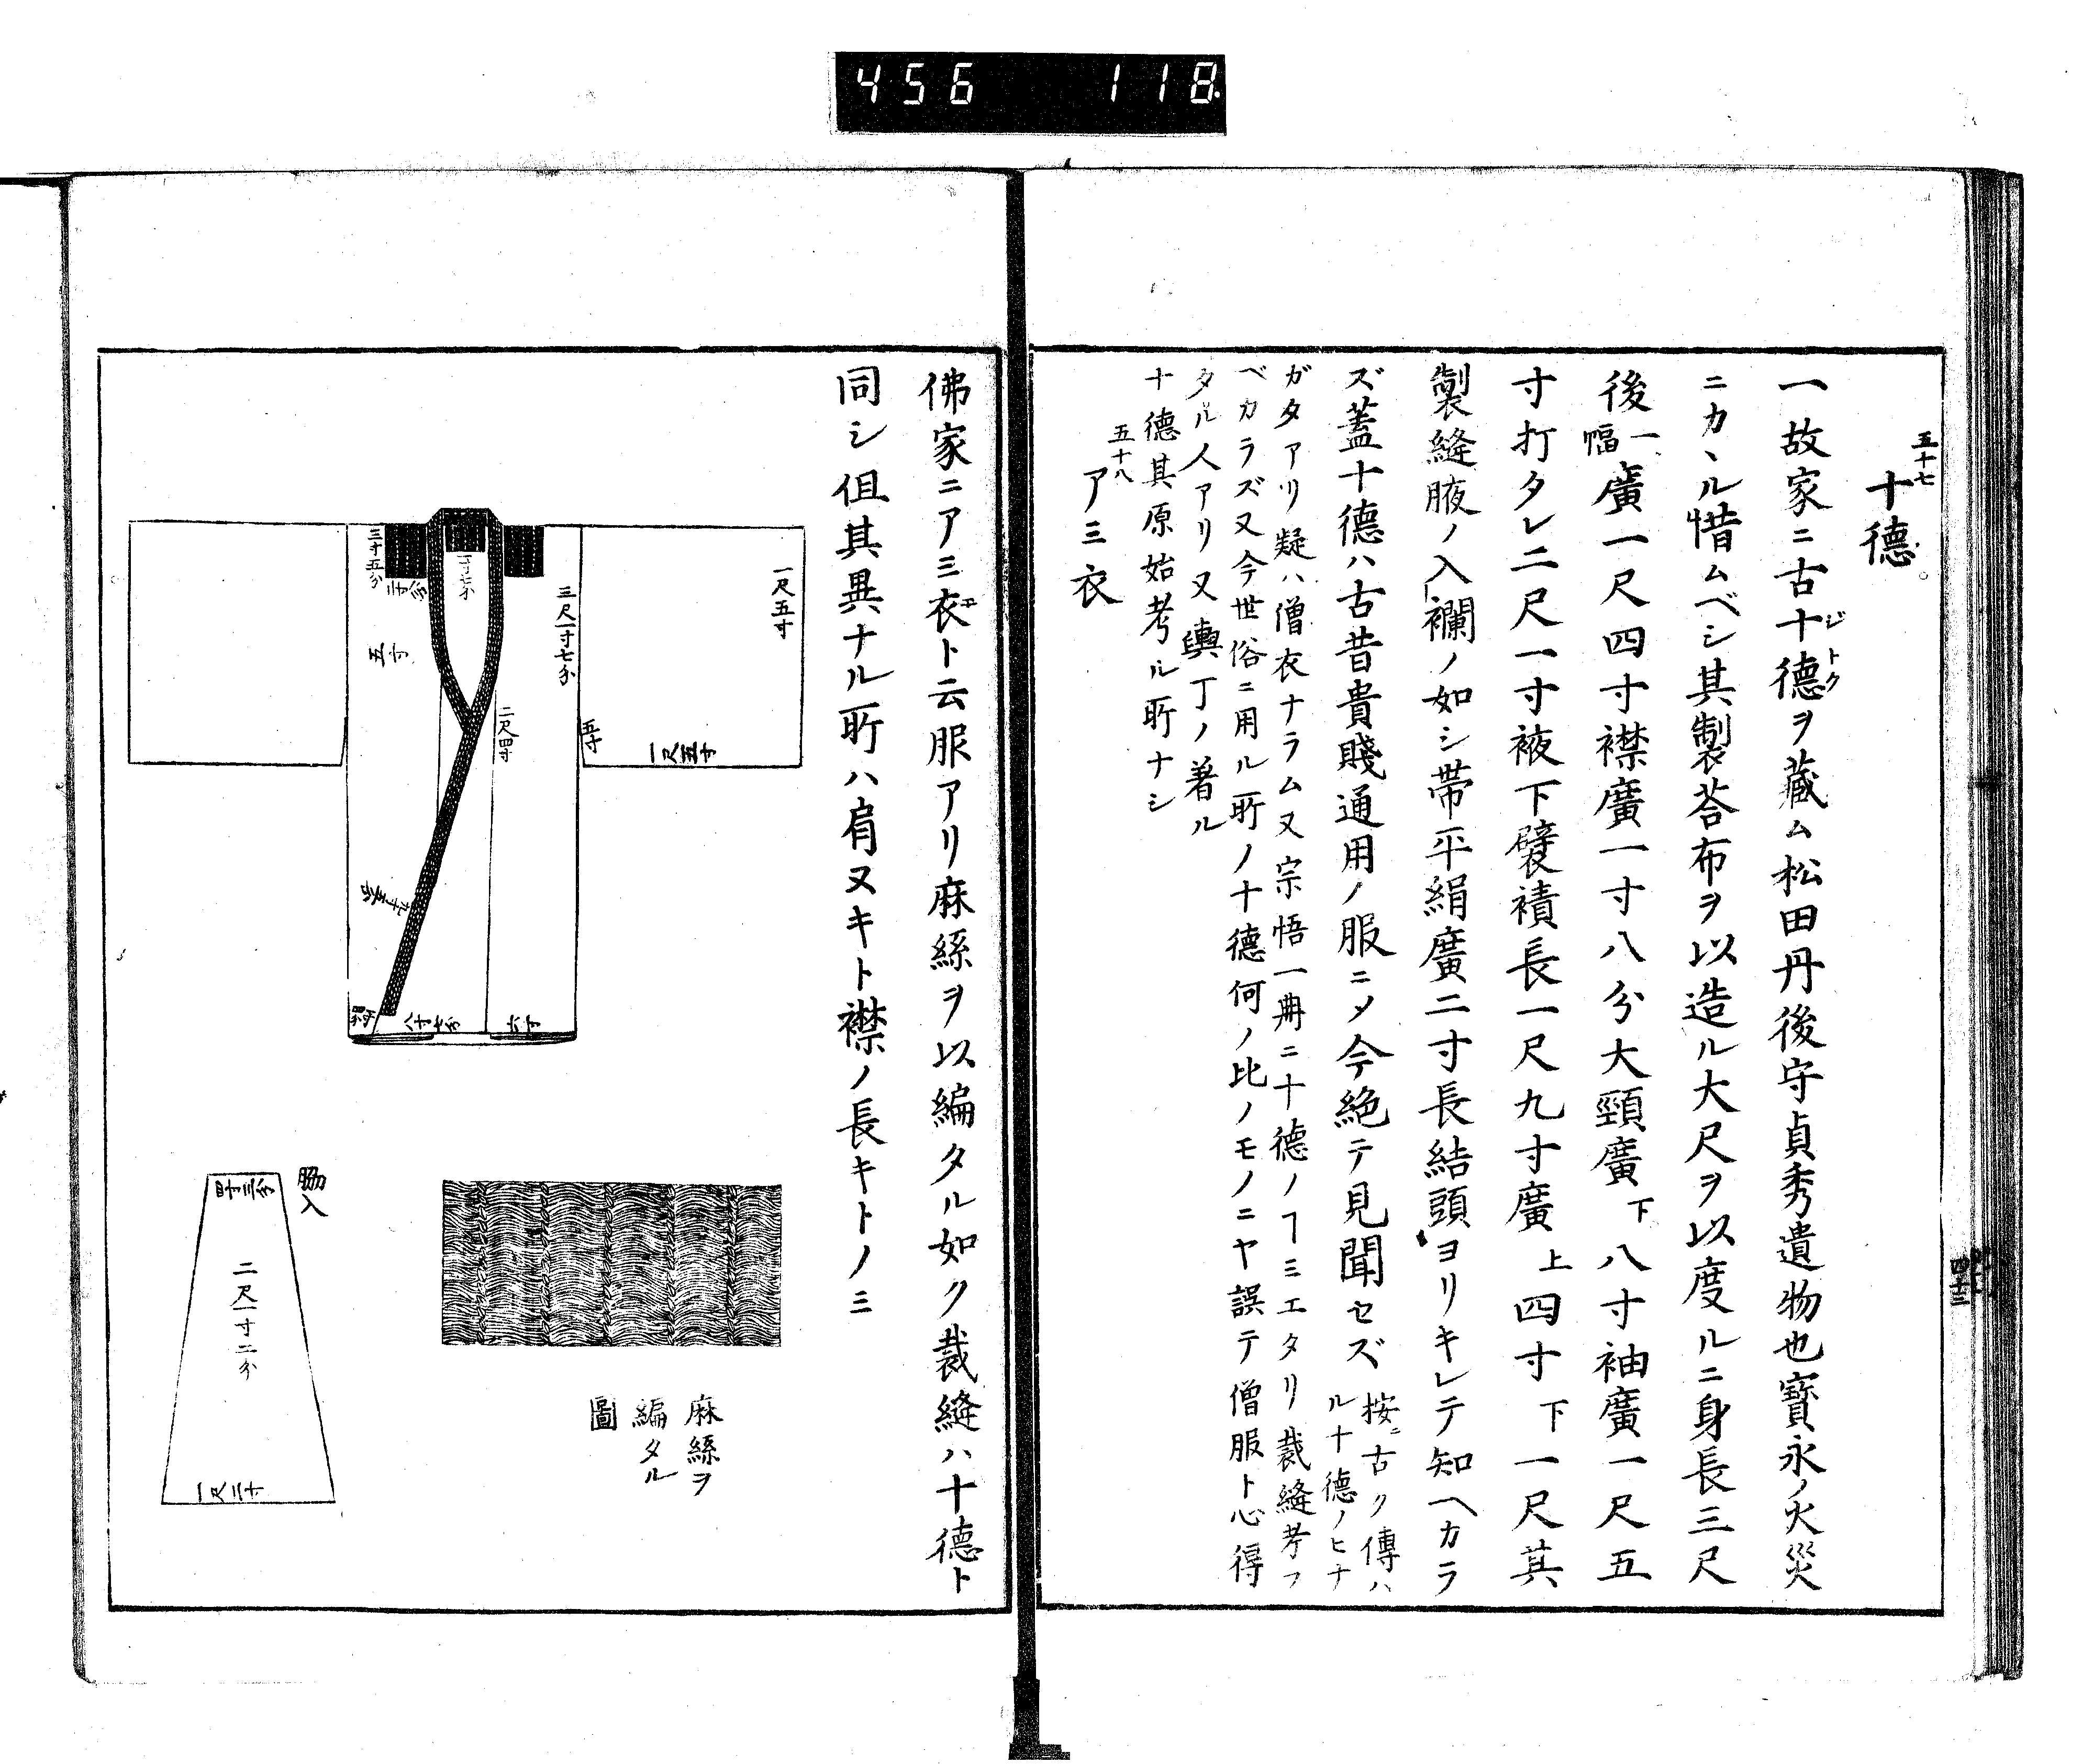 456 118
五十七
十德
一故家ニ古十德ヲ藏ム松田丹後守貞秀遺物也寶永ノ火災
ジトク
ニカヽル惜ムベシ其製荅布ヲ以造ル大尺ヲ以度ルニ身長三尺
後一幅廣一尺四寸襟廣一寸八分大頸廣下八寸袖廣一尺五
寸打タレ二尺一寸袯下襞襀長一尺九寸廣上四寸下一尺其
製縫腋ノ入襴ノ如シ帶平絹廣二寸長結頭ヨリキレテ知ヘカラ
ズ蓋十德ハ古昔貴賤通用ノ服ニメ今絶テ見聞セズ
按ニ古ク傳ハ
ル十德ノヒナ
ガタアリ疑ハ僧衣ナラム又宗悟一冊ニ十德ノヿミエタリ裁縫考フ
ベカラズ又今世俗ニ用ル所ノ十德何ノ比ノモノニヤ誤テ僧服ト心得
タル人アリ又輿丁ノ著ル
十德其原始考ル所ナシ
五十八
アミ衣
四十三
佛家ニアミ衣ト云服アリ麻絲ヲ以編タル如ク裁縫ハ十德ト
エ
同シ但其異ナル所ハ肩ヌキト襟ノ長キトノミ
一尺五寸
一尺五寸
五寸
三尺一寸七分
二尺四寸
三寸五分
五寸
八寸七分
六寸
脇入
四寸三分
二尺一寸二分
一尺二寸
麻絲ヲ
編タル
圖